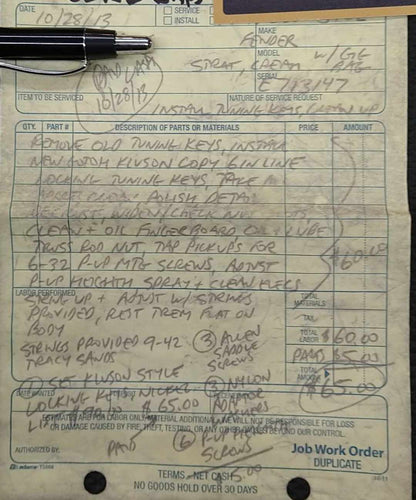 DATE 10/28/13
SERVICE
INSTALL
MAKE
FENDER
MODEL
STRAT, CREAM W/GIG BAG
SERIAL
E 783147
PAID CASH
10/28/13
ITEM TO BE SERVICED
NATURE OF SERVICE REQUEST
INSTALL TUNING KEYS, CLEAN UP
QTY. PART # DESCRIPTION OF PARTS OR MATERIALS PRICE AMOUNT
REMOVE OLD TUNING KEYS, INSTALL
NEW GOTOH KLUSON COPY 6 IN LINE
LOCKING TUNING KEYS, TAKE
POLISH
CHECK NUT
CLEAN + OIL FINGERBOARD LUBE
TRUSS ROD NUT, TAP PICKUPS FOR
6-32 P-UP MTG SCREWS, ADJUST
P-UP HEIGHTH SPRAY + CLEAN ELECS
$60.00
LABOR PERFORMED
STRING UP + ADJUST W/ STRINGS
PROVIDED, REST TREM FLAT ON
BODY
STRINGS PROVIDED 9-42
TRACY SANDS
(3) ALLEN
SADDLE
SCREWS
TOTAL MATERIALS
TAX
TOTAL LABOR $60.00
PARTS 65.00
TOTAL AMOUNT $65.00
(1) SET KLUSON STYLE
LOCKING KEYS NICKEL
$65.00
(3) NYLON
ADAPTOR
WASHERS
(6) P-UP
SCREWS
5.00
ESTIMATES ARE FOR LABOR ONLY, MATERIAL ADDITIONAL. WE WILL NOT BE RESPONSIBLE FOR LOSS
OR DAMAGE CAUSED BY FIRE, THEFT, TESTING, OR ANY OTHER CAUSE BEYOND OUR CONTROL.
AUTHORIZED BY:
PAID
Job Work Order
DUPLICATE
adams
TERMS - NET CASH
NO GOODS HOLD OVER 30 DAYS